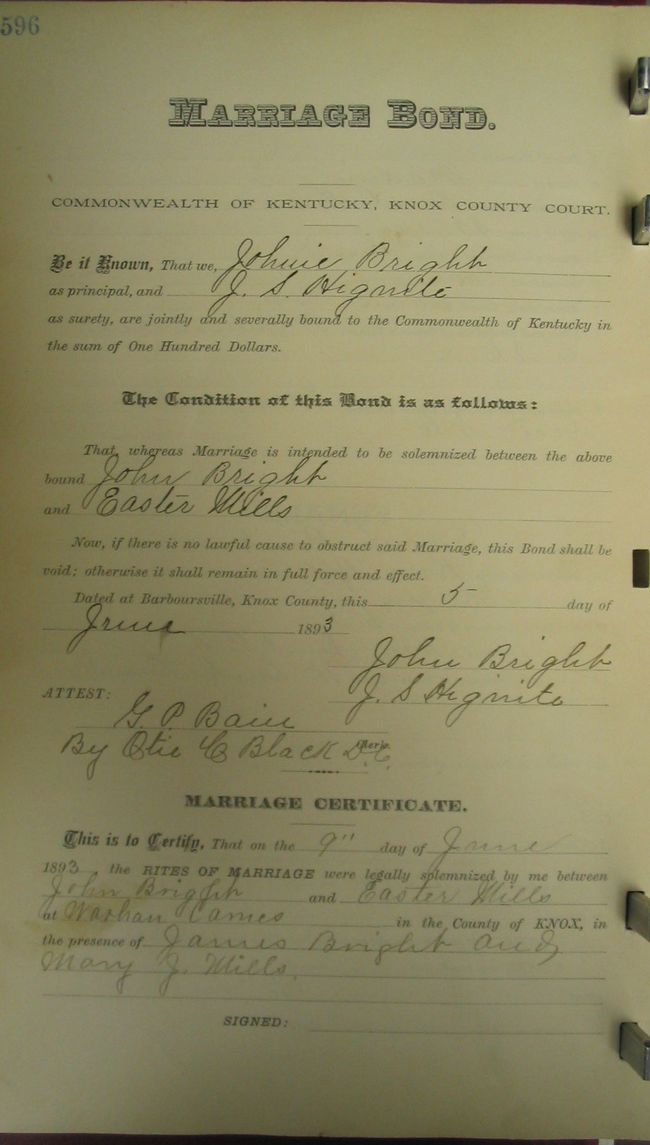 596
MARRIAGE BOND.
COMMONWEALTH OF KENTUCKY, KNOX COUNTY COURT.
Be it Known, That we, Johnie Bright
as principal, and J. S. Hignite
as surety, are jointly and severally bound to the Commonwealth of Kentucky in
the sum of One Hundred Dollars.
The Condition of this Bond is as follows:
That, whereas Marriage is intended to be solemnized between the above
bound John Bright
and Easter Mills
Now, if there is no lawful cause to obstruct said Marriage, this Bond shall be
void; otherwise it shall remain in full force and effect.
Dated at Barboursville, Knox County, this 5 day of
June 1893
John Bright
ATTEST: J. S Hignite
G. P. Bain
By Otie C Black D.C. Clerk.
MARRIAGE CERTIFICATE.
This is to Certify, That on the 9" day of June
1893 the RITES OF MARRIAGE were legally solemnized by me between
John Bright and Easter Mills
at in the County of KNOX, in
the presence of James Bright and
Mary J. Mills.
SIGNED: